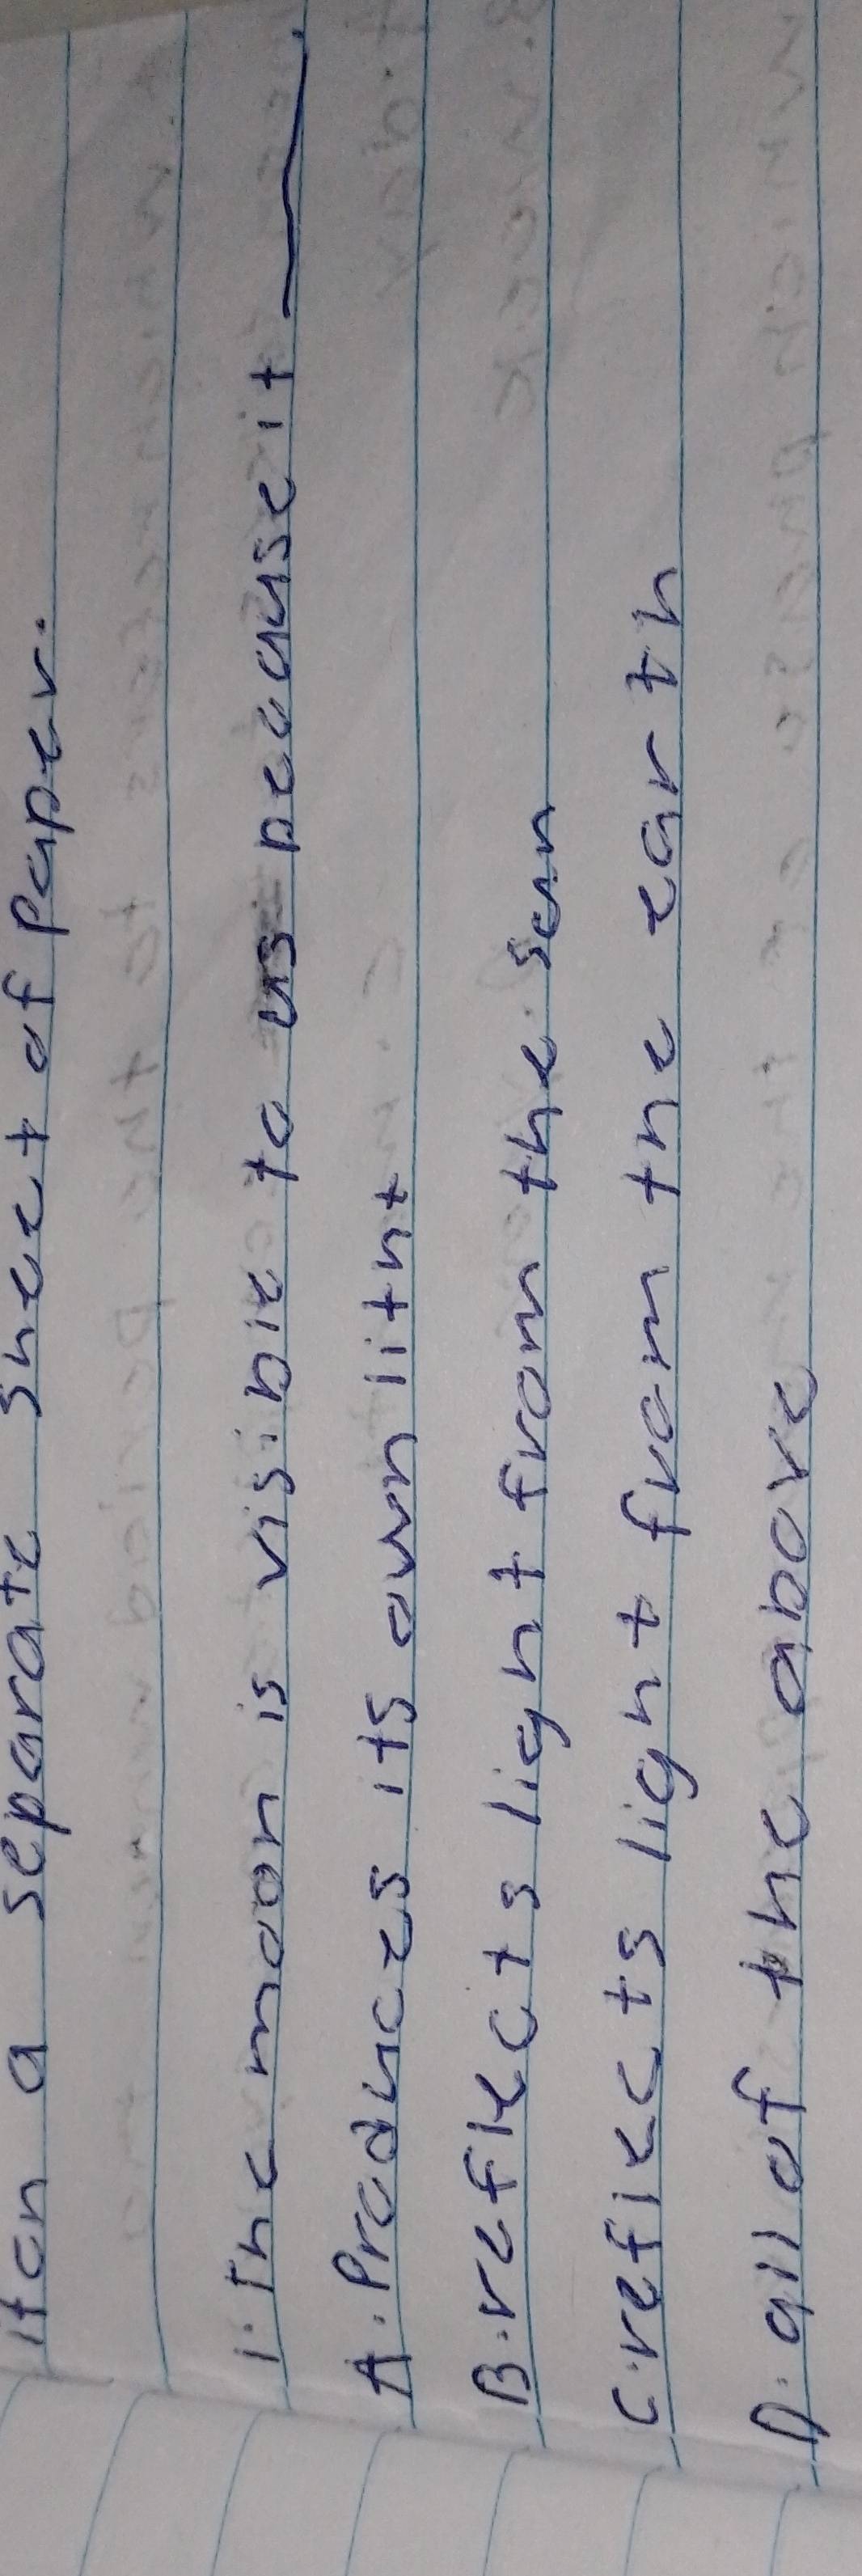 it on a separate sheet of paper.
1. The moon is visible to us because it ____
A. Produces its own litht
B. reflects light from the sun
C. reflects light from the earth
D. all of the above